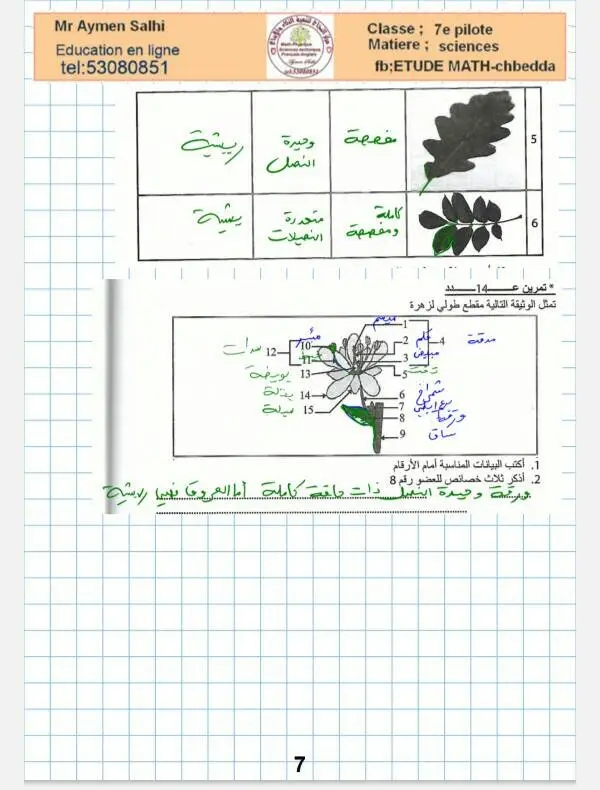 Mr Aymen Salhi
Education en ligne
tel:53080851
Classe ; 7e pilote
Matiere ; sciences
fb;ETUDE MATH-chbedda
5 مفصصة وحيدة النصل ريشية
6 كاملة ومفصصة متعددة النصيلات ريشية
* تمرين عـــــ14ـــــدد
تمثل الوثيقة التالية مقطع طولي لزهرة
1 ميسم
2 قلم
3 مبيض
4 مدقة
5
6 شمراخ
7 برعم إبطي
8 ورقة
9 ساق
10 مئبر
11
12 سداة
13 بويضة
14 بتلة
15 سبلة
1. أكتب البيانات المناسبة أمام الأرقام
2. أذكر ثلاث خصائص للعضو رقم 8
ورقة وحيدة النصل ذات حافة كاملة أما العروق فهي ريشية
7